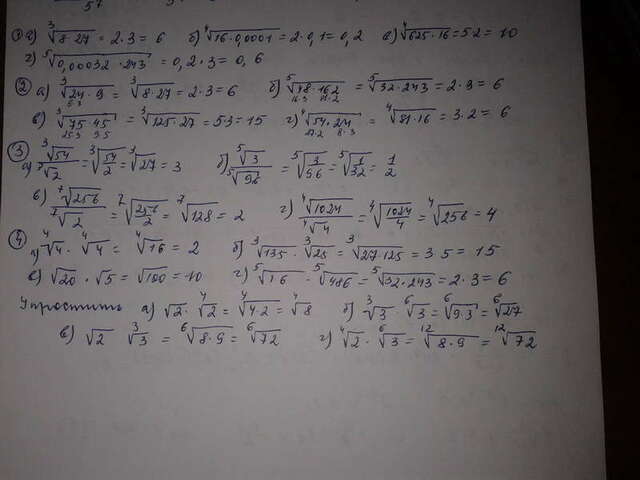 ① а) ∛(8·27) = 2·3 = 6 б) ⁴√(16·0,0001) = 2·0,1 = 0,2 в) ⁴√(625·16) = 5·2 = 10
г) ⁵√(0,00032·243) = 0,2·3 = 0,6
② а) ∛(24·9) = ∛(8·27) = 2·3 = 6 б) ⁵√(48·162) = ⁵√(32·243) = 2·3 = 6
в) ∛(75·45) = ∛(125·27) = 5·3 = 15 г) ⁴√(54·24) = ⁴√(81·16) = 3·2 = 6
③ а) ∛54/∛2 = ∛(54/2) = ∛27 = 3 б) ⁵√3/⁵√96 = ⁵√(3/96) = ⁵√(1/32) = 1/2
в) ⁷√256/⁷√2 = ⁷√(256/2) = ⁷√128 = 2 г) ⁴√1024/⁴√4 = ⁴√(1024/4) = ⁴√256 = 4
④ а) ⁴√4 · ⁴√4 = ⁴√16 = 2 б) ∛135 · ∛25 = ∛(27·125) = 3·5 = 15
в) √20 · √5 = √100 = 10 г) ⁵√16 · ⁵√486 = ⁵√(32·243) = 2·3 = 6
Упростить а) √2 · ⁴√2 = ⁴√(4·2) = ⁴√8 б) ∛3 · ⁶√3 = ⁶√(9·3) = ⁶√27
в) √2 ∛3 = ⁶√(8·9) = ⁶√72 г) ⁴√2 · ⁶√3 = ¹²√(8·9) = ¹²√72